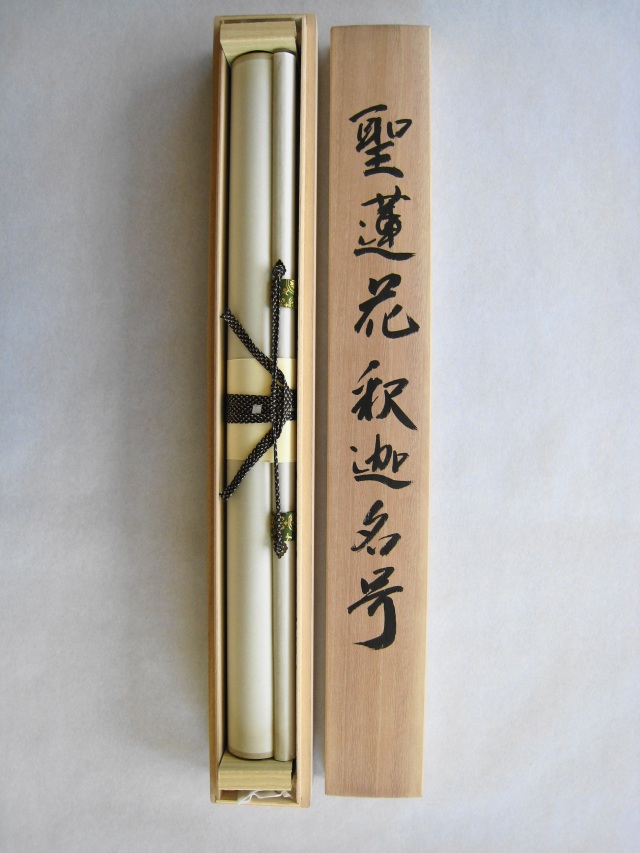 聖蓮花釈迦名号